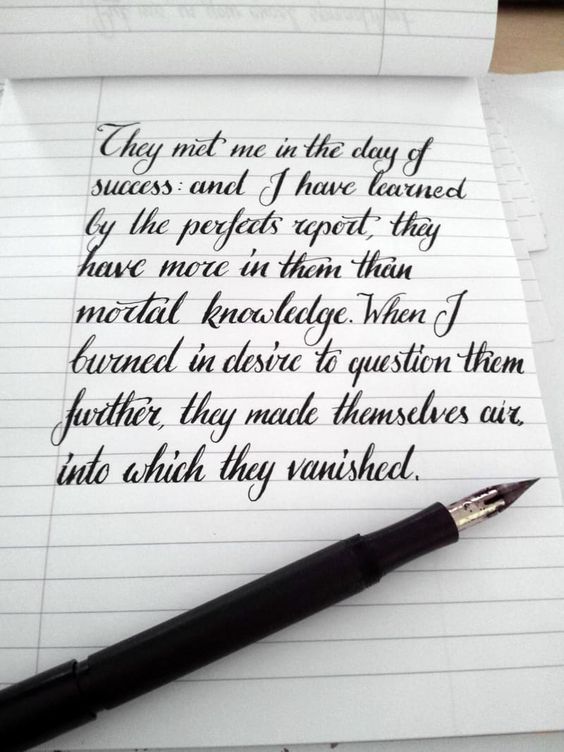 They met me in the day of
success: and I have learned
by the perfects report, they
have more in them than
mortal knowledge. When I
burned in desire to question them
further, they made themselves air,
into which they vanished.